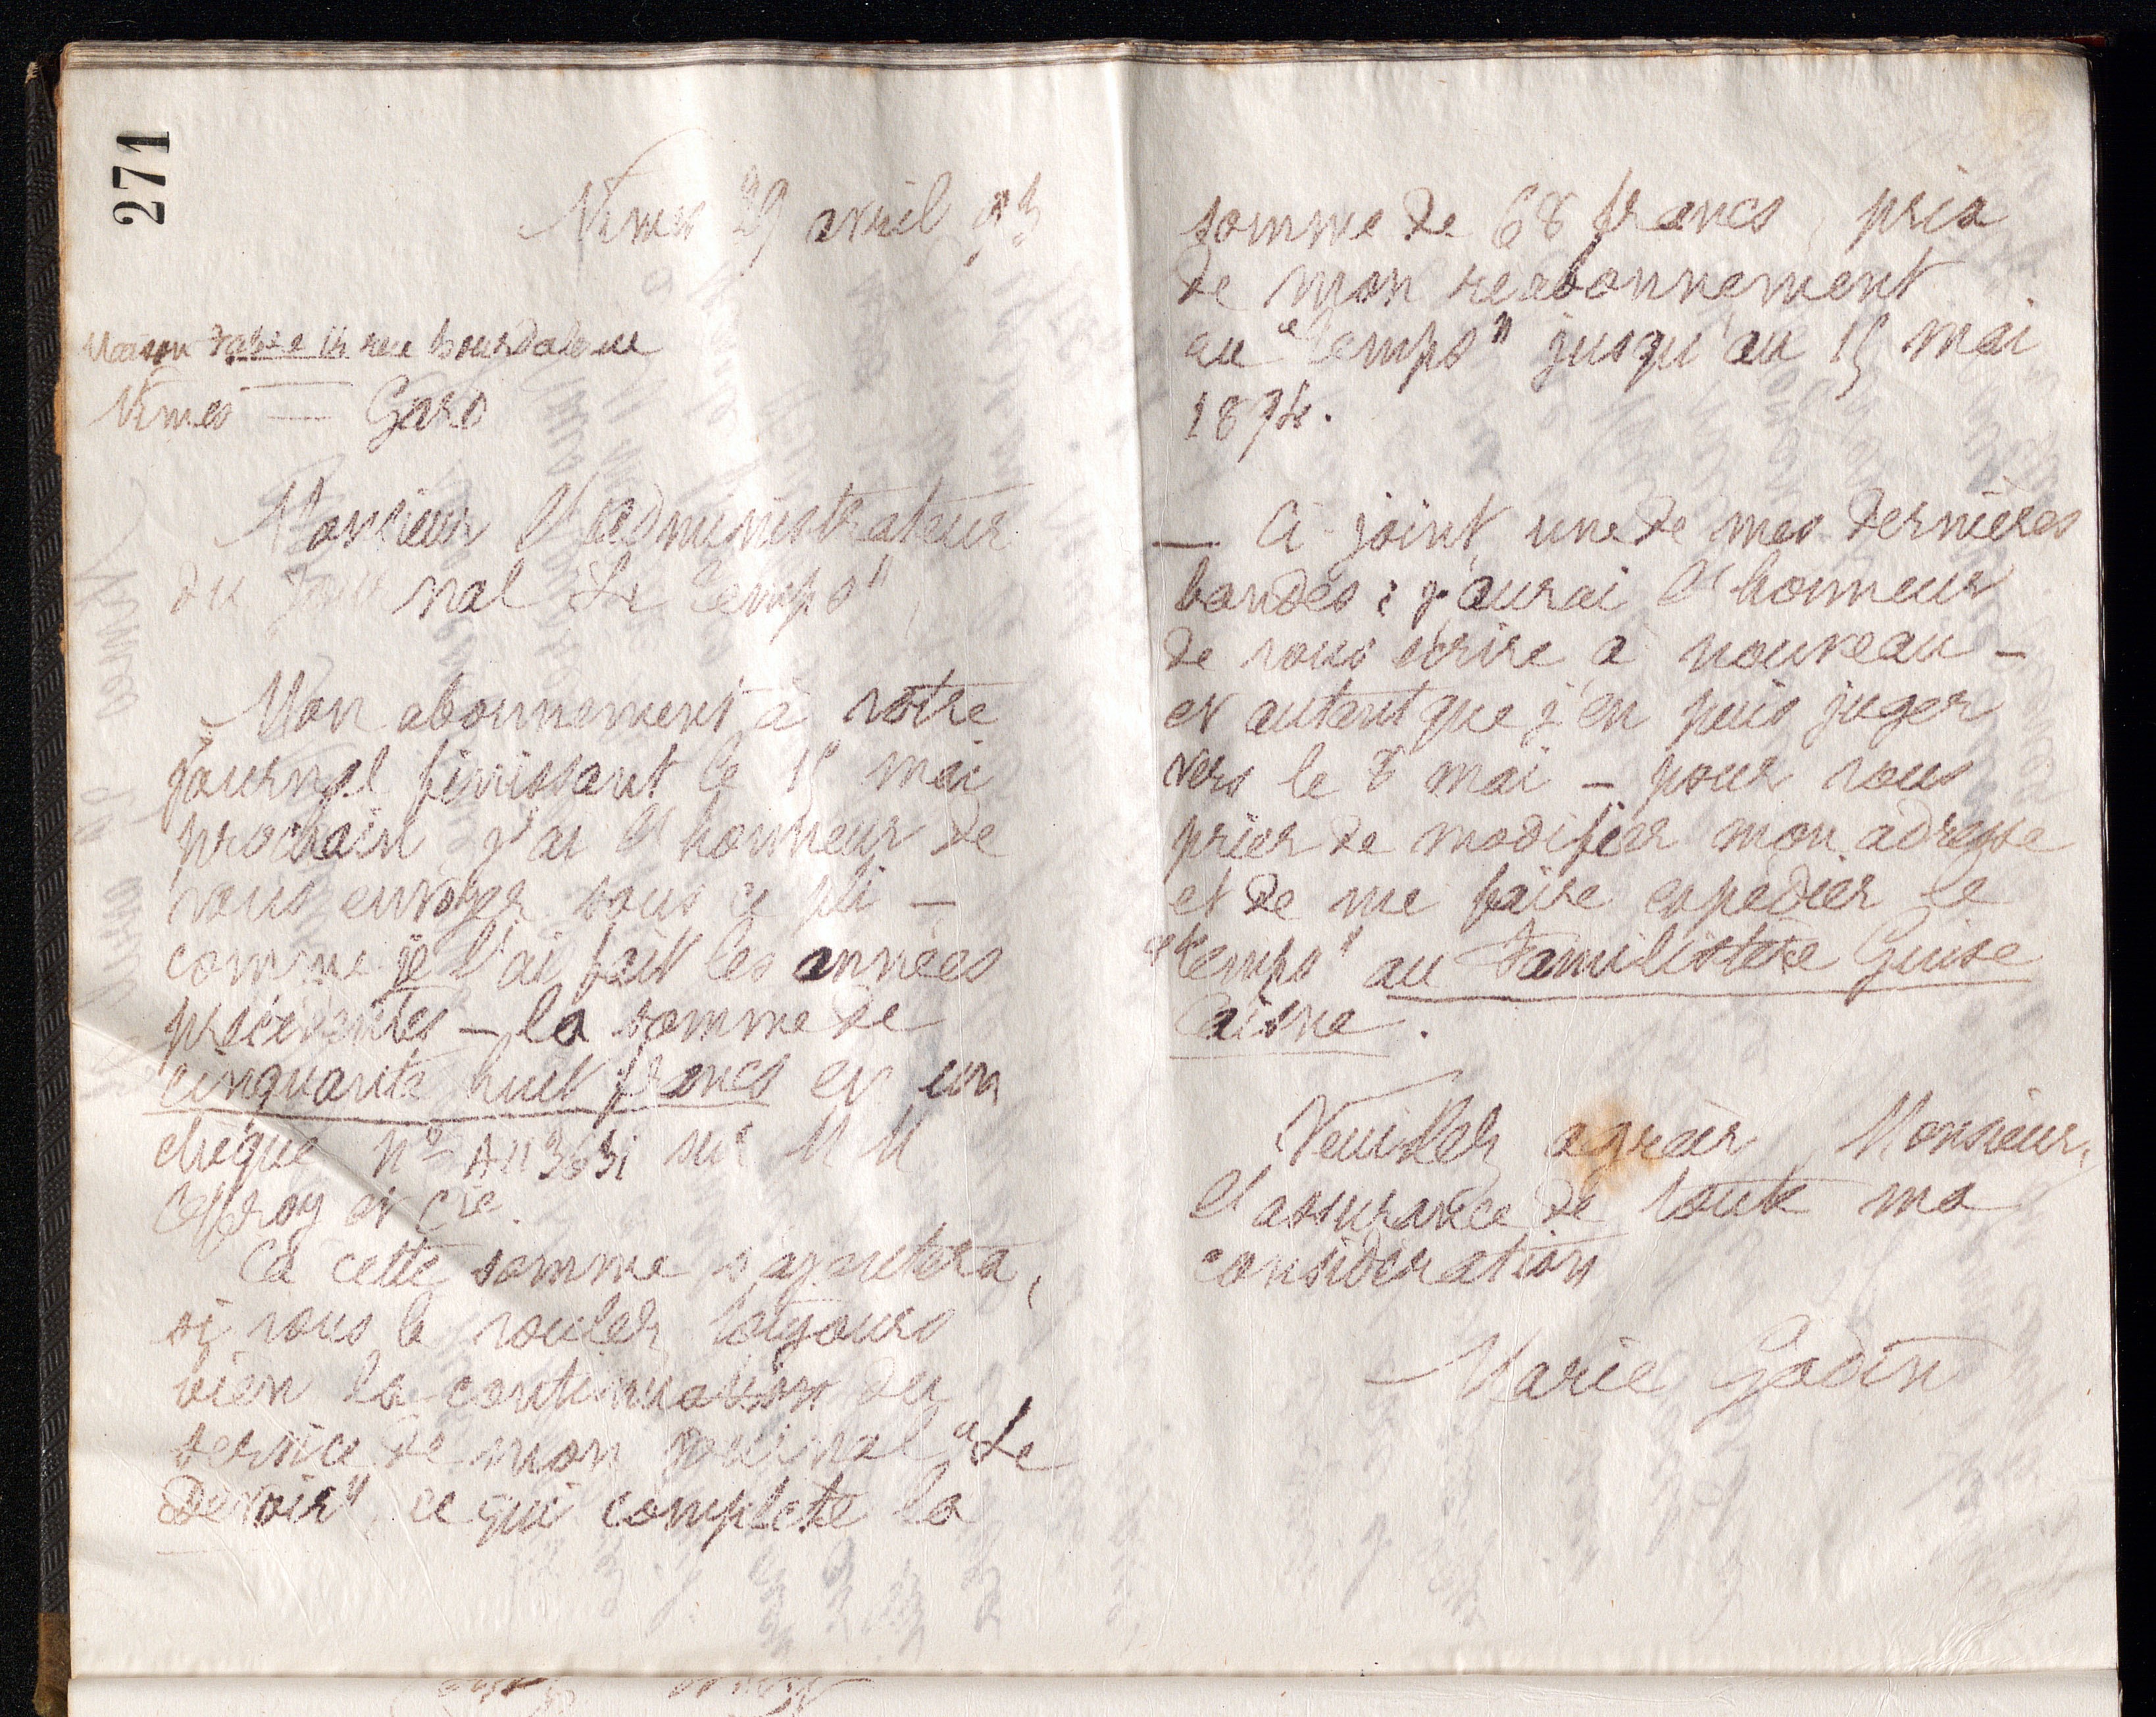 271
Nîmes 29 avril 93
Maison Fabre 14 rue Bourdaloue
Nîmes — Gard
Monsieur l'administrateur
du journal "Le Temps",
Mon abonnement à votre
journal finissant le 15 mai
prochain j'ai l'honneur de
vous envoyer sous ce pli —
comme je l'ai fait les années
précédentes — la somme de
cinquante huit francs en un
chèque n° sur M M
Offroy et Cie.
A cette somme s'ajoutera,
si vous le voulez toujours
bien la continuation du
service de mon journal "Le
Devoir", ce qui complete la
somme de 68 francs, prix
de mon reabonnement
au "Temps" jusqu'au 15 mai
1894.
— Ci-joint, une de mes dernières
bandes ; j'aurai l'honneur
de vous écrire à nouveau —
et autant que j'en puis juger
vers le 8 mai — pour vous
prier de modifier mon adresse
et de me faire expédier le
"Temps" au Familistère Guise
Aisne.
Veuillez agréer, Monsieur,
l'assurance de toute ma
considération
Marie Godin